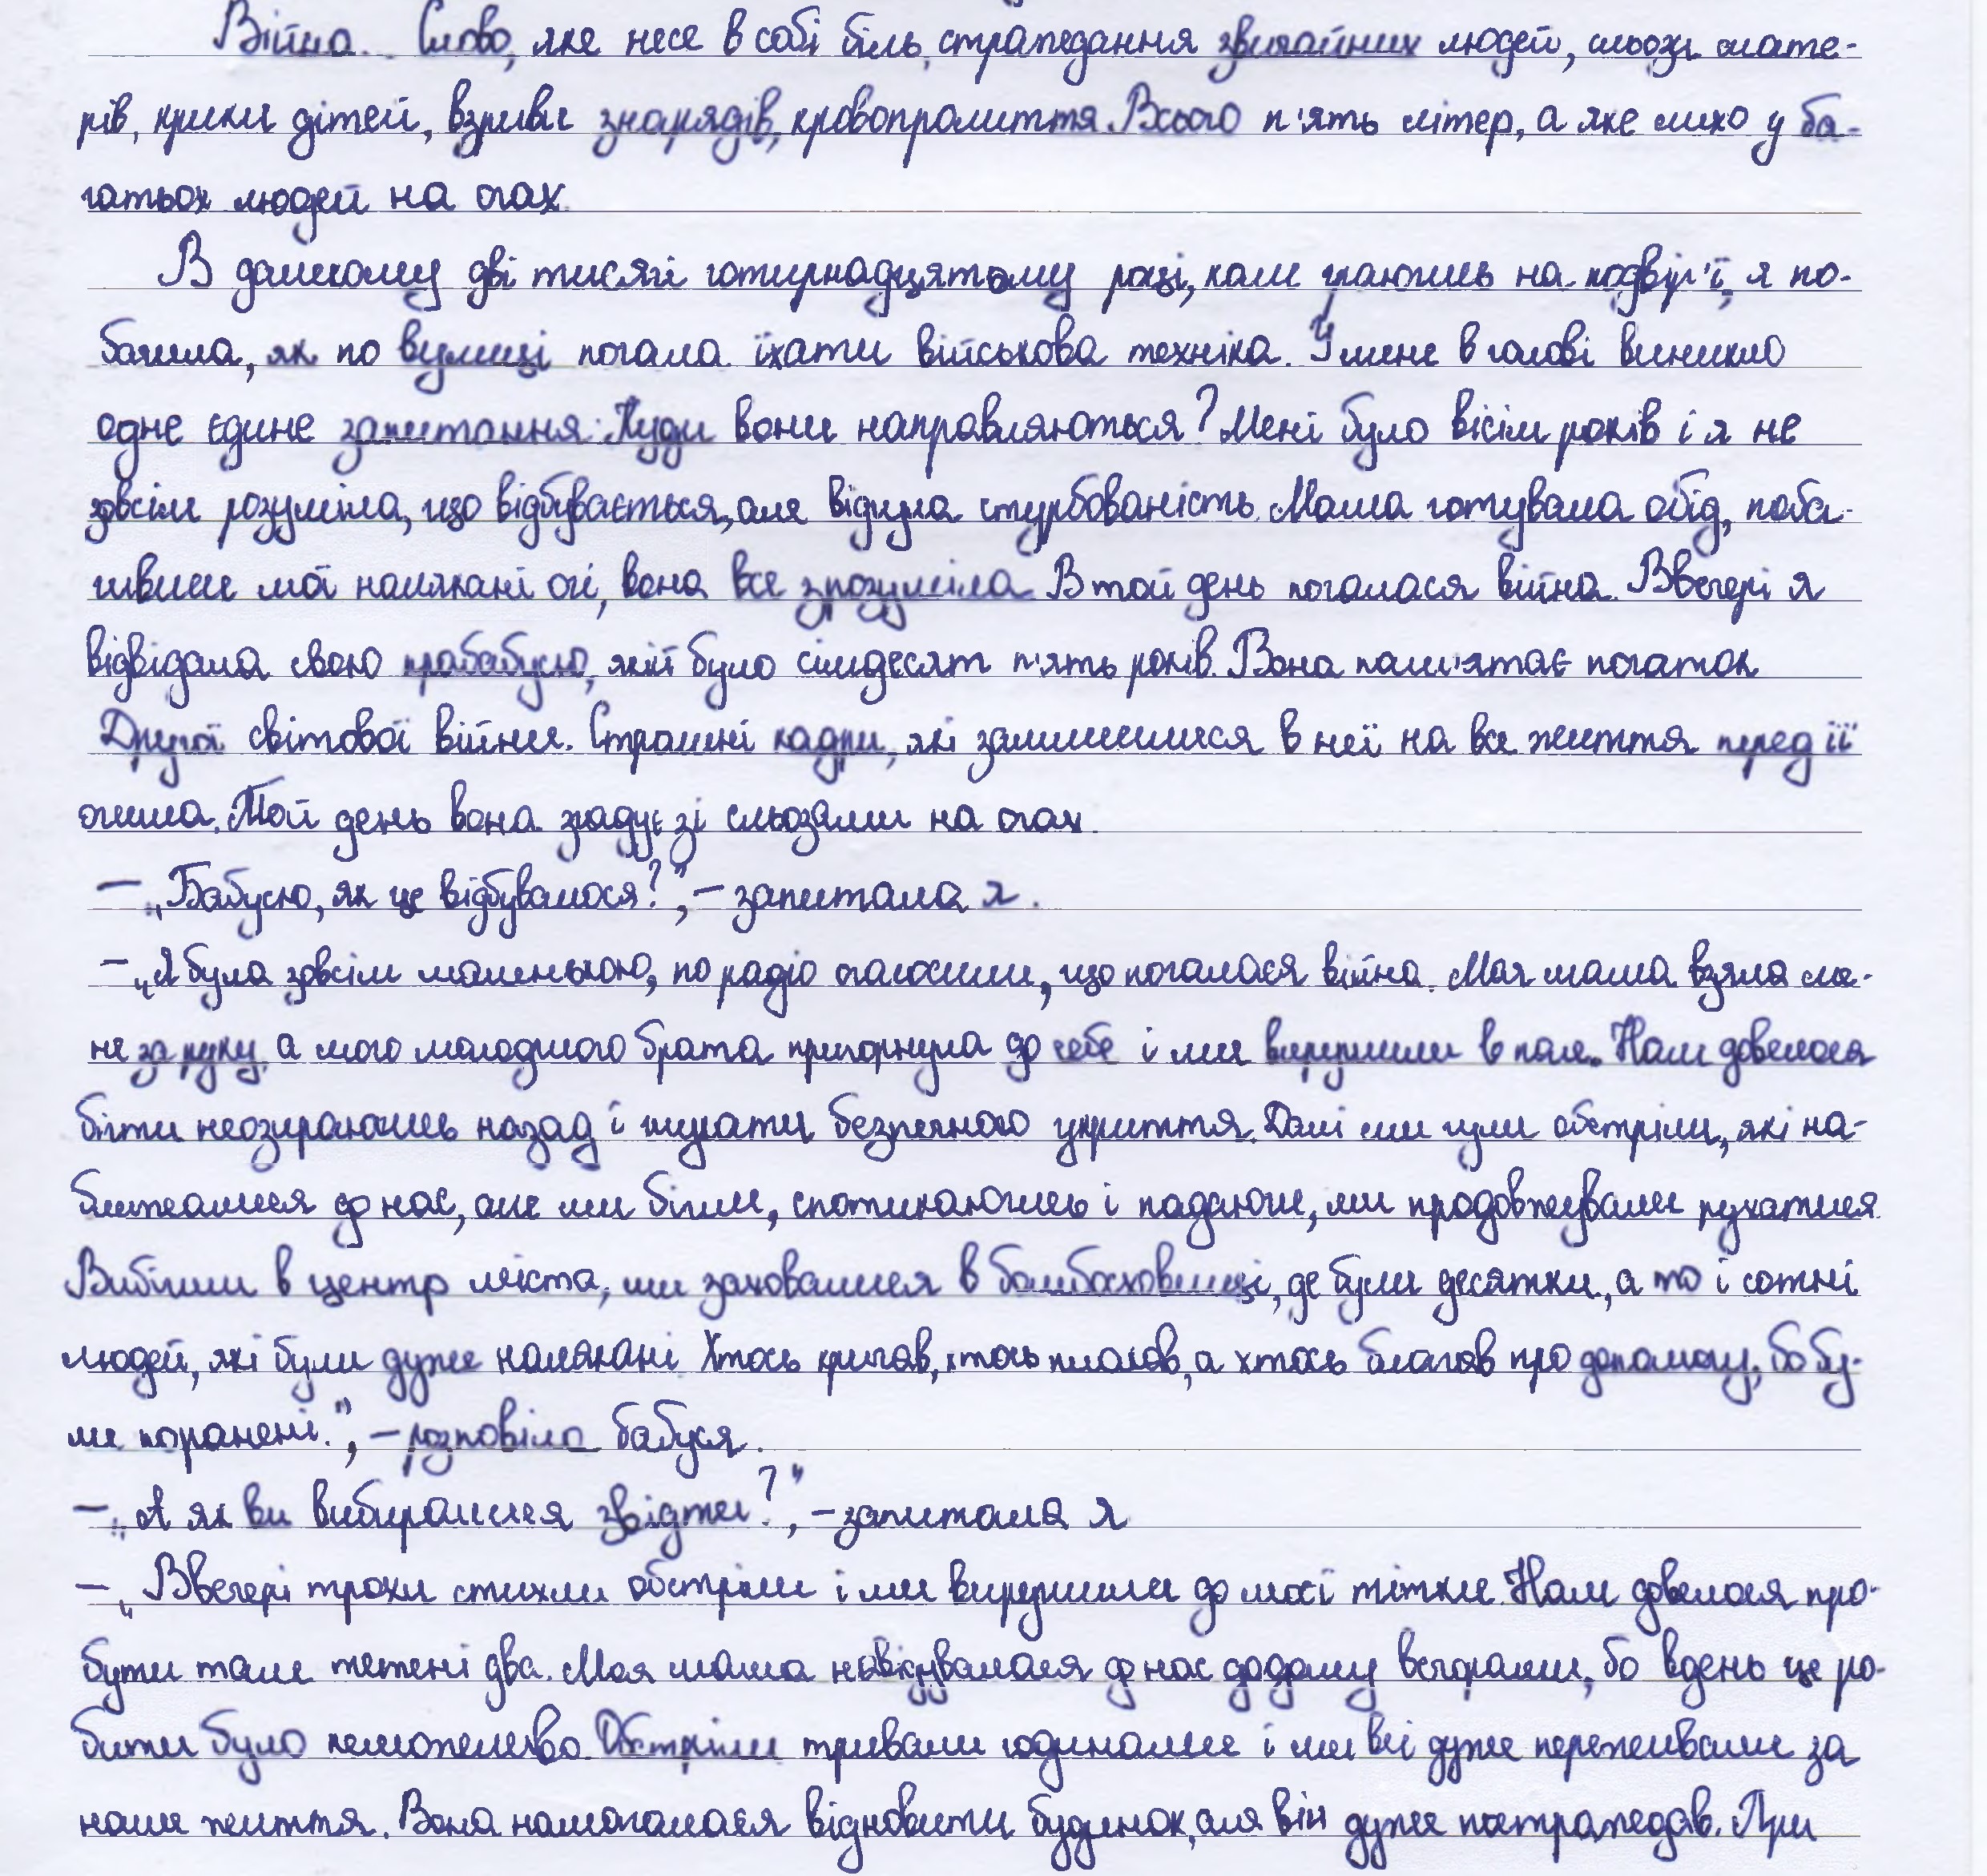 Війна. Слово, яке несе в собі біль, страждання звичайних людей, сльози мате-
рів, крики дітей, взриви знарядів, кровопролиття. Всього п'ять літер, а яке лихо у ба-
гатьох людей на очах.
В далекому дві тисячі чотирнадцятому році, коли граючись на подвір'ї, я по-
бачила, як по вулиці почала їхати військова техніка. У мене в голові виникло
одне єдине запитання: Куди вони направляються? Мені було вісім років і я не
зовсім розуміла, що відбувається, але відчула стурбованість. Мама готувала обід, поба-
чивши мої налякані очі, вона все зрозуміла. В той день почалася війна. Ввечері я
відвідала свою прабабусю, якій було сімдесят п'ять років. Вона пам'ятає початок
Другої світової війни. Страшні кадри, які залишилися в неї на все життя перед її
очима. Той день вона згадує зі сльозами на очах.
— „Бабусю, як це відбувалося?", – запитала я.
– „Я була зовсім маленькою, по радіо оголосили, що почалася війна. Моя мама взяла ме-
не за руку, а мого молодшого брата пригорнула до себе і ми вирушили в поле. Нам довелося
бігти неозираючись назад і шукати безпечного укриття. Далі ми чули обстріли, які на-
ближалися до нас, але ми бігли, спотикаючись і падаючи, ми продовжували рухатися.
Вибігши в центр міста, ми заховалися в бомбосховищі, де були десятки, а то і сотні
людей, які були дуже налякані. Хтось кричав, хтось плакав, а хтось благав про допомогу, бо бу-
ли поранені.", – розповіла бабуся.
– „А як ви вибиралися звідти?", – запитала я
– „Ввечері трохи стихли обстріли і ми вирушили до моєї тітки. Нам довелося про-
бути там тижні два. Моя мама навідувалася до нас додому вечорами, бо вдень це ро-
бити було неможливо. Обстріли тривали годинами і ми всі дуже переживали за
наше життя. Вона намагалася відновити будинок, але він дуже постраждав. При